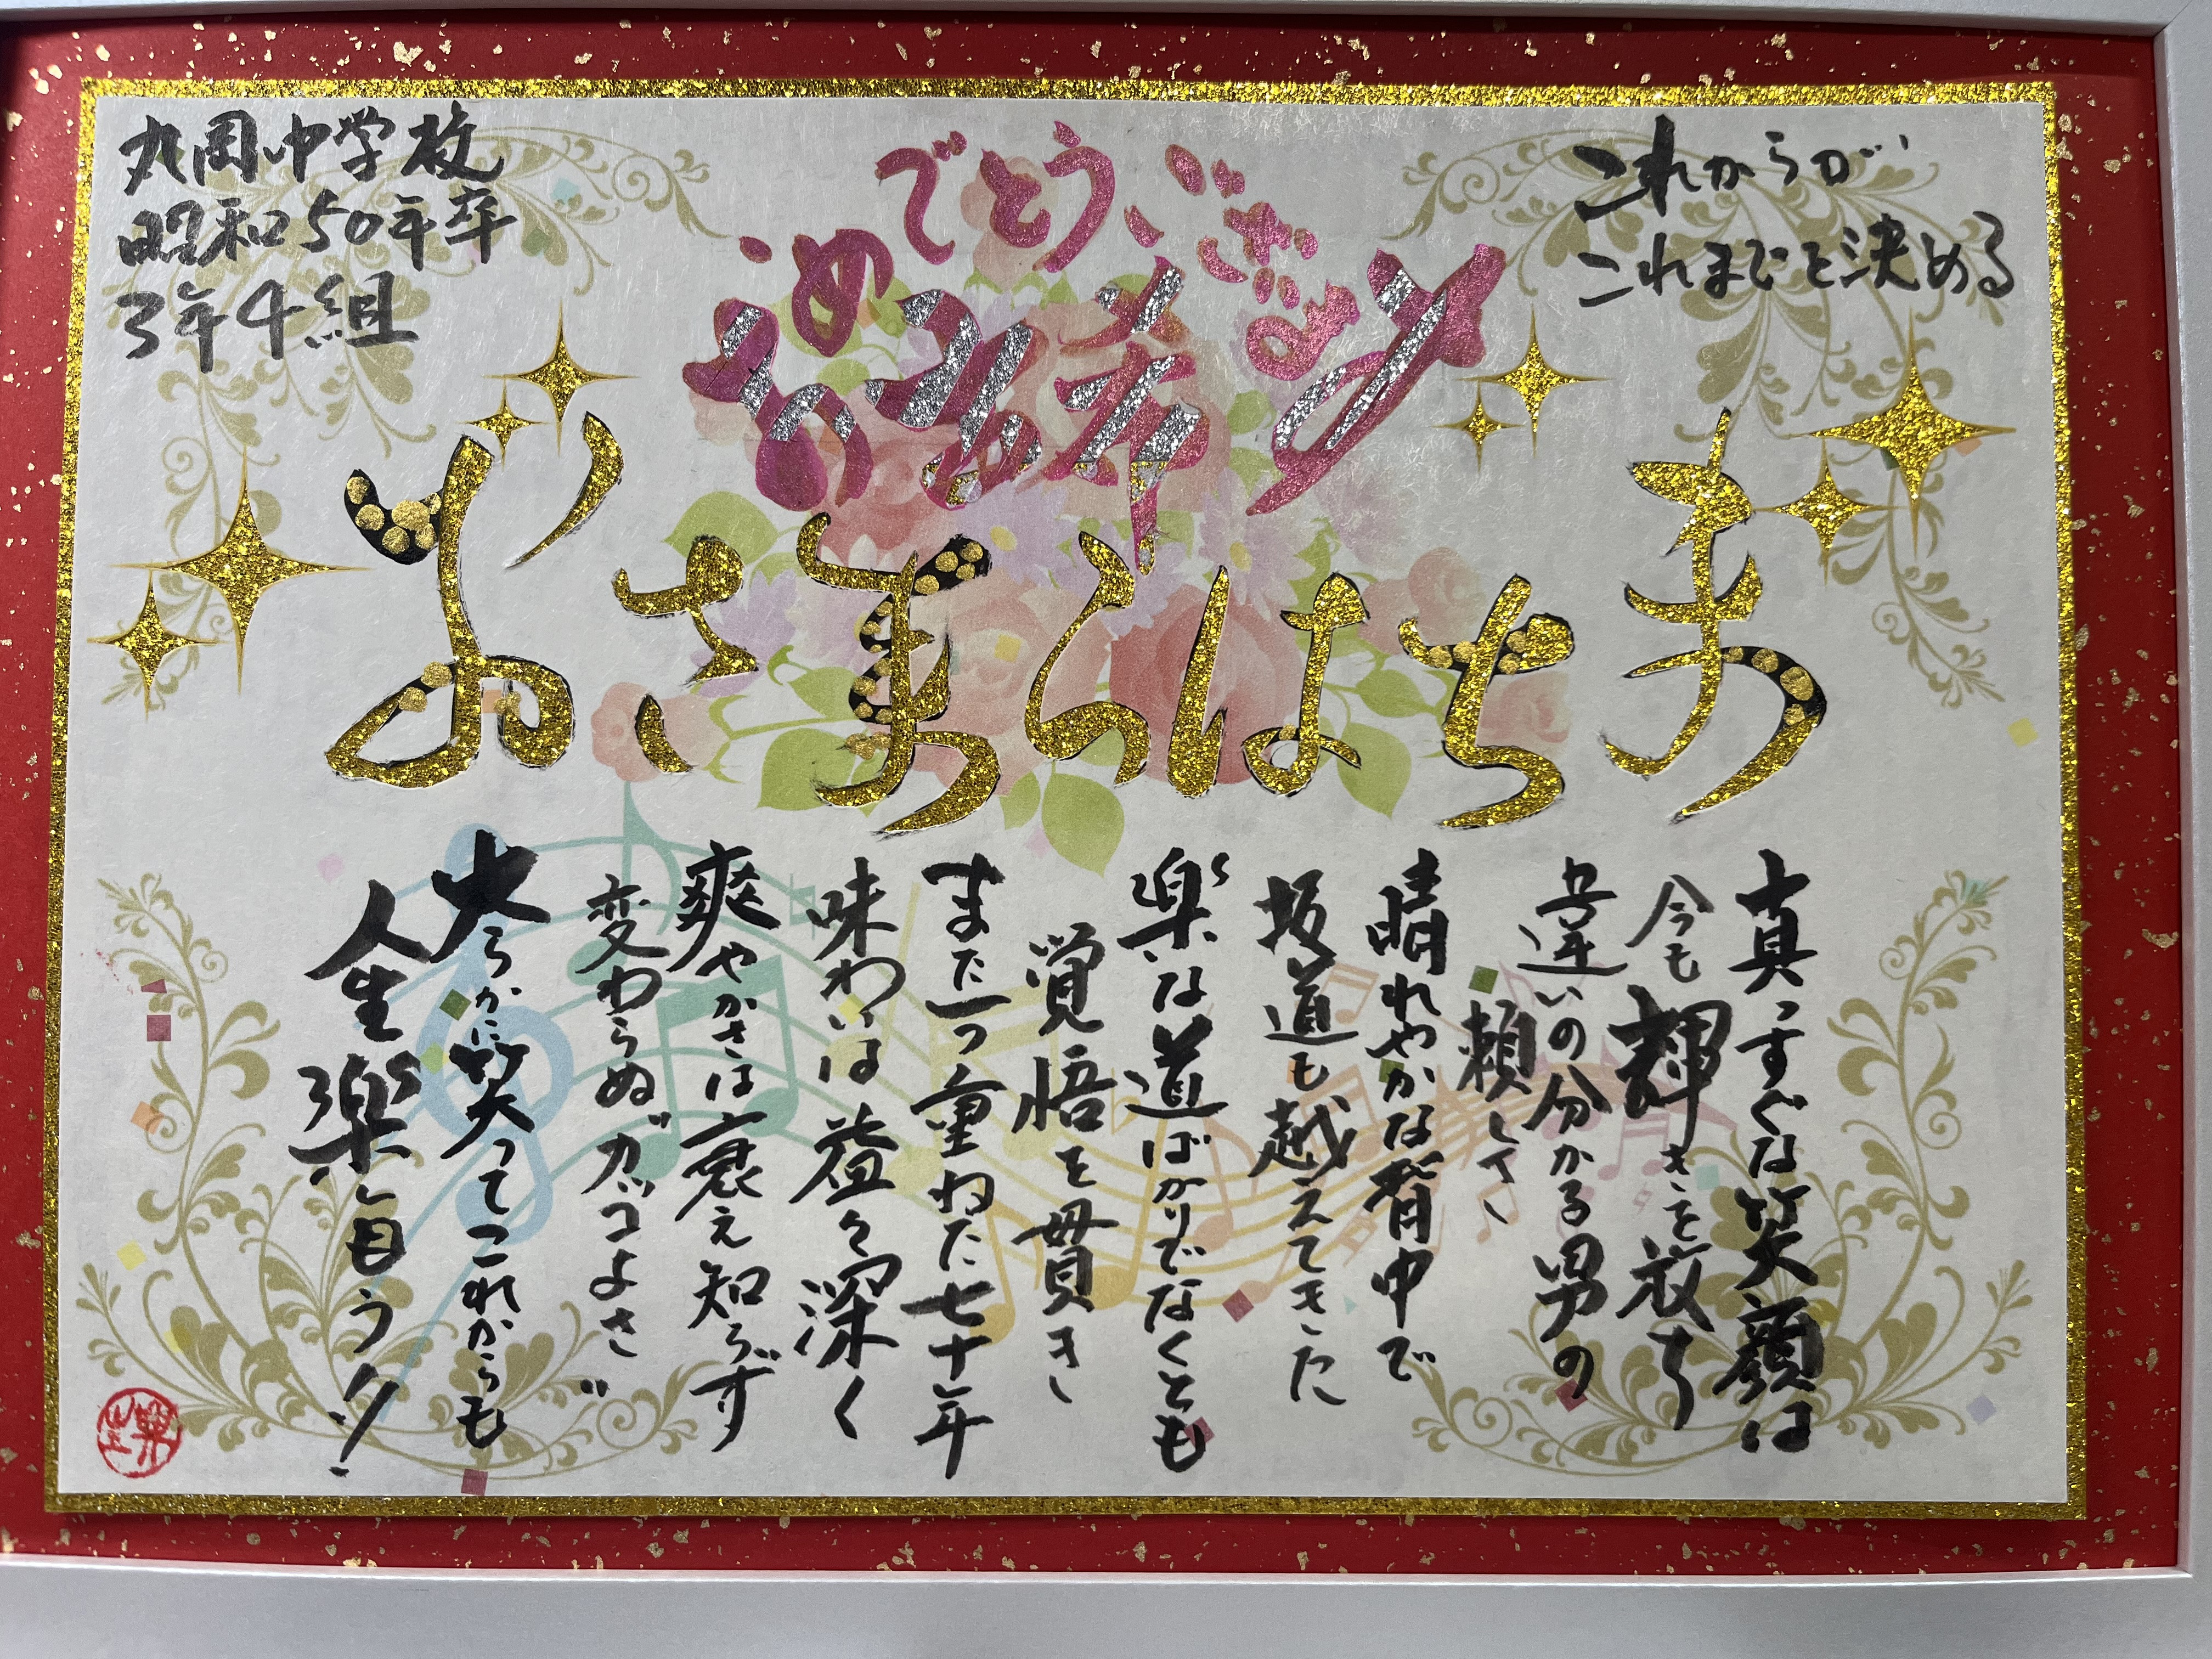 丸岡中学校
昭和50年卒
3年4組
これからが
これまでを決める
古希
おめでとうございます
まちはらまさお
真っすぐな笑顔は
今も輝きを放ち
違いの分かる男の
頼しさ
晴れやかな背中で
坂道も越えてきた
楽な道ばかりでなくとも
覚悟を貫き
また一つ重ねた七十年
味わいは益々深く
爽やかさは衰え知らず
変わらぬガッコよさ
大らかに笑ってこれからも
人生楽